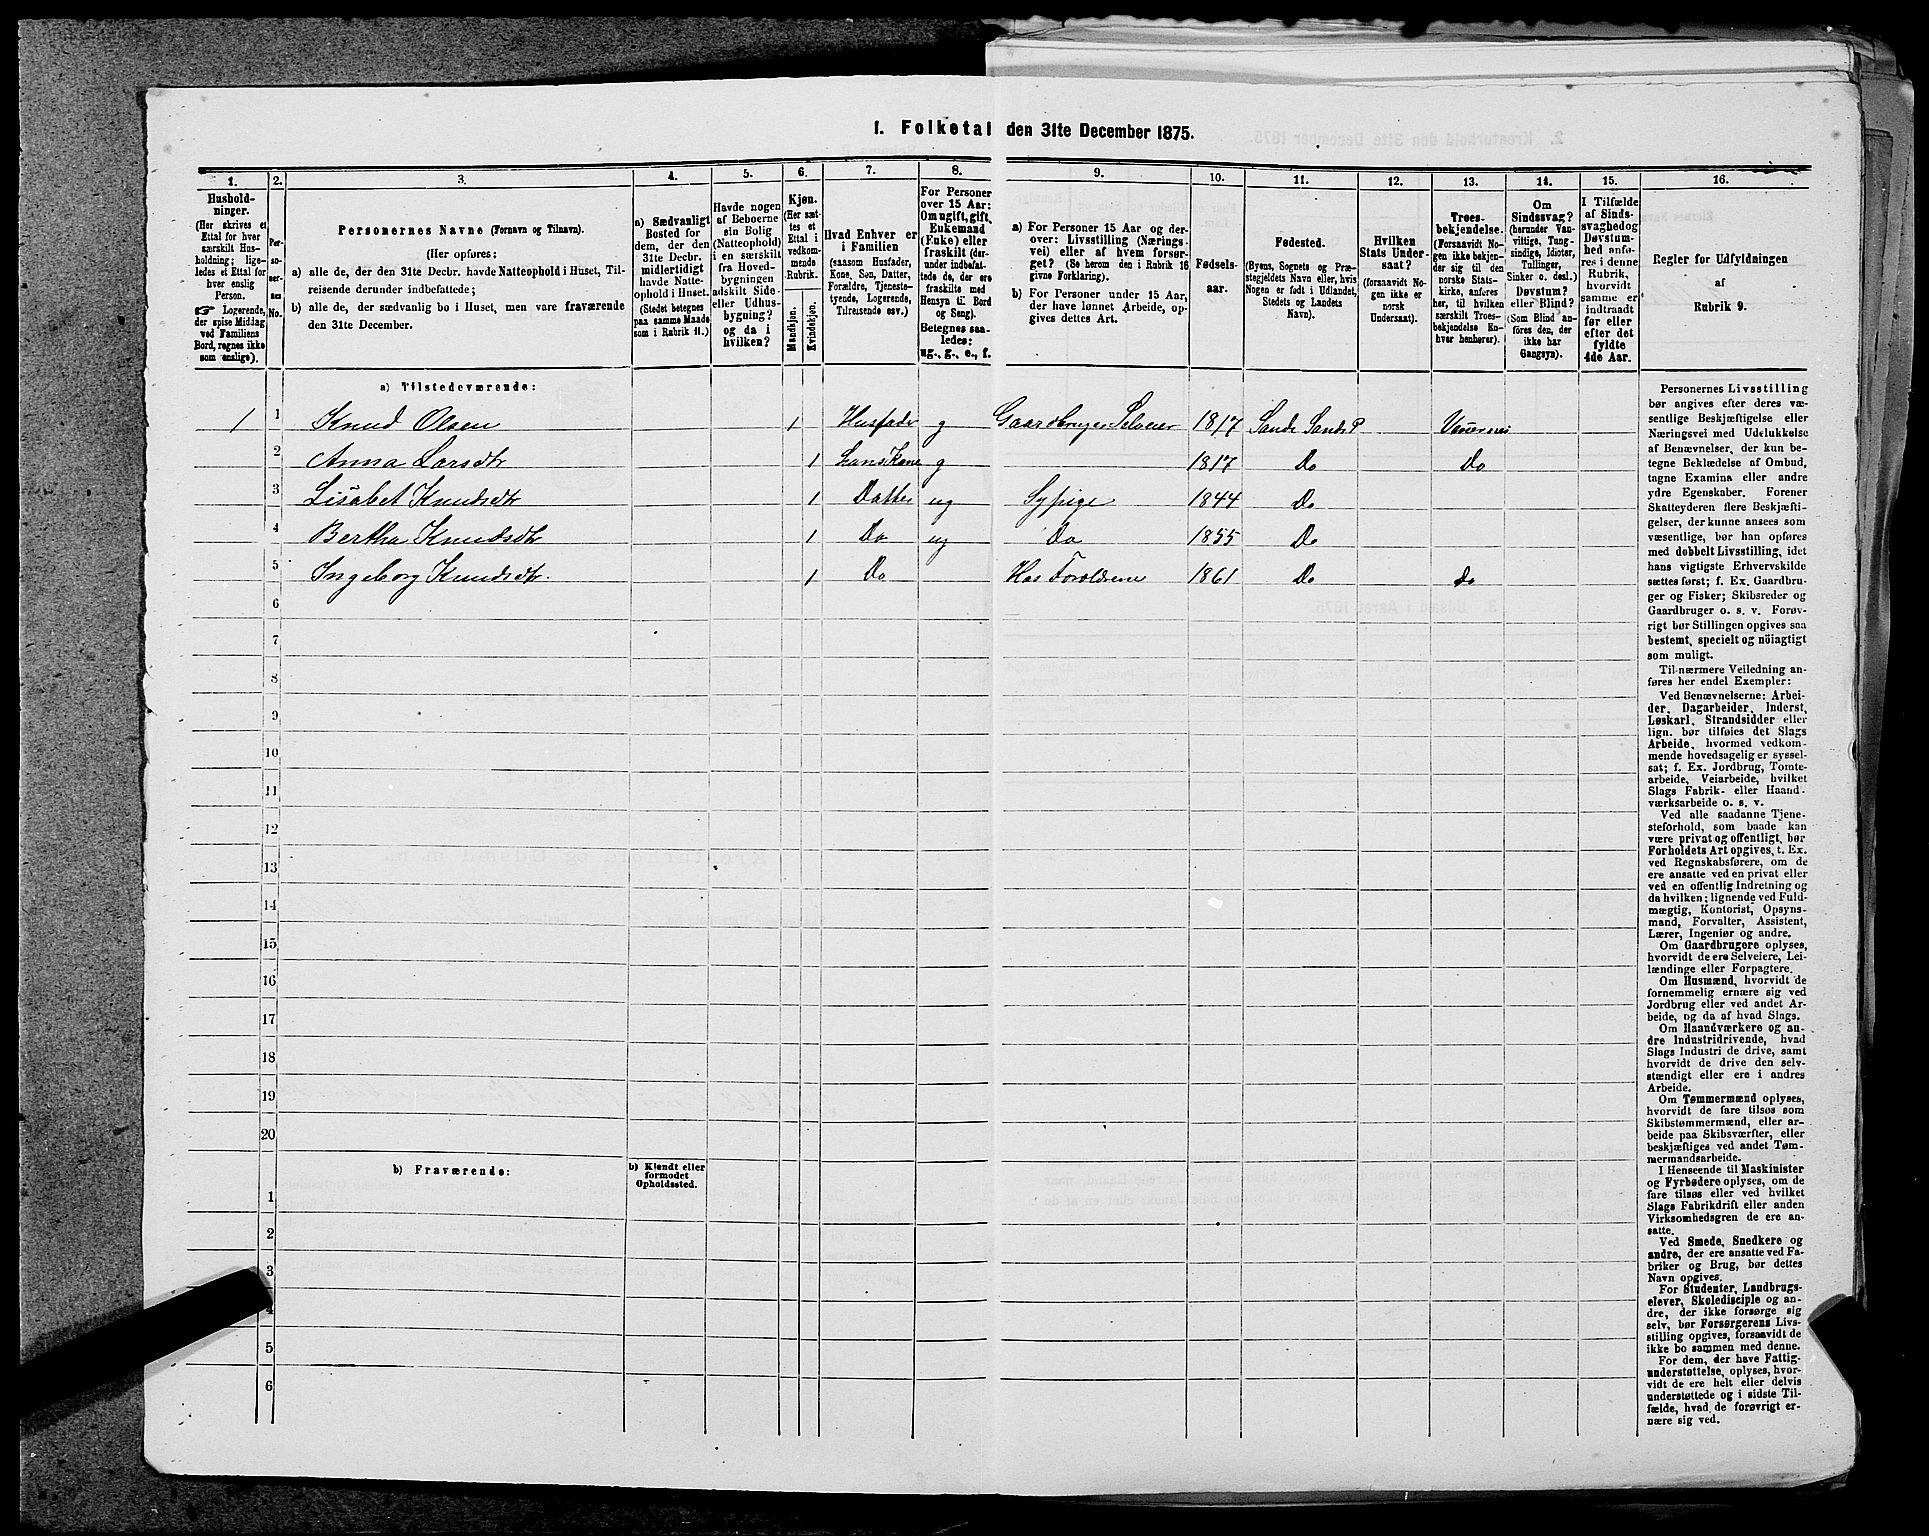 1. Folketal den 31te December 1875.
1. 2. 3. 4. 5. 6. 7. 8. 9. 10. 11. 12. 13. 14. 15. 16.
Hushold-
ninger.
(Her skrives et
Ettal for hver
særskilt Hus-
holdning; lige-
ledes et Ettal for
hver enslig
Person.
☞ Logerende,
der spise Middag
ved Familiens
Bord, regnes ikke
som enslige).
Per-
soner-
nes
No.
Personernes Navne (Fornavn og Tilnavn).
(Her opføres:
a) alle de, der den 31te Decbr. havde Natteophold i Huset, Til-
reisende derunder indbefattede;
b) alle de, der sædvanlig bo i Huset, men vare fraværende
den 31te December.
a) Sædvanligt
Bosted for
dem, der den
31te Decbr.
midlertidigt
havde Natte-
ophold i Huset.
(Stedet betegnes
paa samme Maade
som i Rubrik 11.)
Havde nogen
af Beboerne
ein Bolig
(Natteophold)
i en særskilt
fra Hoved-
bygningen
adskilt Side-
eller Udhus-
bygning?
og da i
hvilken?
Kjøn.
(Her sæt-
tes et
Ettal i
vedkom-
mende
Rubrik.
Mandkjøn.
Kvindekjøn.
Hvad Enhver er
i Familien
(saasom Husfader,
Kone, Søn, Datter,
Forældre, Tjeneste-
tyende, Logerende,
Tilreisende osv.)
For Personer
over 15 Aar:
Om ugift, gift,
Enkemand
(Enke) eller
fraskilt (der-
under indbefat-
tede de, der ere
fraskilte med
Hensyn til Bord
og Seng).
Betegnes saa-
ledes:
ug., g., e., f.
a) For Personer 15 Aar og der-
over: Livsstilling (Nærings-
vei) eller af hvem forsør-
get? (Se herom den i Rubrik 16
givne Forklaring).
b) For Personer under 15 Aar,
der have lønnet Arbeide, op-
gives dettes Art.
Fødsels-
aar.
Fødested.
(Byens, Sognets og Præ-
stegjeldets Navn eller, hvis
Nogen er født i Udlandet,
Stedets og Landets
Navn).
Hvilken
Stats Under-
saat?
(forsaavidt No-
gen ikke er
norsk
Undersaat).
Troes-
bekjendelse.
(Forsaavidt No-
gen ikke bekjen-
der sig til den
norske Stats-
kirke, anføres
her, til hvilken
særskilt Troes-
bekjendelse En-
hver henhører).
Om
Sindssvag?
(herunder Van-
vittige, Tung-
sindige, Idioter,
Tullinger,
Sinker o. desl.)
Døvstum?
eller Blind?
(Som Blind an-
føres den, der
ikke har
Gangsyn).
I Tilfælde
af Sinds-
svaghed og
Døvstum-
hed anfø-
res i denne
Rubrik,
hvorvidt
samme er
indtraadt
før eller
efter det
fyldte
4de Aar.
Regler for Udfyldningen
af
Rubrik 9.
a) Tilstedeværende:
1 1 Knud Olsen 1 Husfader g Gaardbruger Selveier 1817 Sande Sands P
2 Anna Larsdtr 1 hans Kone g 1817 Do Do
3 Lisabet Knudsdtr 1 Datter ug Sypige 1844 Do
4 Bertha Knudsdtr 1 Do ug Do 1855 Do
5 Ingeborg Knudsdtr. 1 Do Hos Forældrene 1861 Do Do
6
7
8
9
10
11
12
13
14
15
16
17
18
19
20
b) Fraværende:
b) Kjendt eller
formodet
Opholdssted.
1
2
3
4
5
6
Personernes Livsstilling
bør angives efter deres væ-
sentlige Beskjæftigelse eller
Næringsvei med Udelukkelse
af Benævnelser, der kun be-
tegne Beklædelse af Ombud,
tagne Examina eller andre
ydre Egenskaber. Forener
Skatteyderen flere Beskjæfti-
gelser, der kunne ansees som
væsentlige, bør han opføres
med dobbelt Livsstilling, idet
hans vigtigste Erhvervskilde
sættes først; f. Ex. Gaardbru-
ger og Fisker; Skibsreder og
Gaardbruger o. s. v. Forøv-
rigt bør Stillingen opgives saa
bestemt, specielt og nöiagtigt
som muligt.
Til nærmere Veiledning an-
føres her endel Exempler:
Ved Benævnelserne: Arbei-
der, Dagarbeider, Inderst,
Løskarl, Strandsidder eller
lign. bør tilføies det Slags
Arbeide, hvormed vedkom-
mende hovedsagelig er syssel-
sat; f. Ex. Jordbrug, Tomte-
arbeide, Veiarbeide, hvilket
Slags Fabrik- eller Haand-
værksarbeide o. s. v.
Ved alle saadanne Tjene-
steforhold, som baade kan
være privat og offentligt, bør
Forholdets Art opgives, t. Ex.
ved Regnskabsførere, om de
ere ansatte ved en privat eller
ved en offentlig Indretning og
da hvilken; lignende ved Fuld-
mægtig, Kontorist, Opsyns-
mand, Forvalter, Assistent,
Lærer, Ingeniør og andre.
Om Gaardbrugere oplyses,
hvorvidt de ere Selveiere, Lei-
lændinge eller Forpagtere.
Om Husmænd, hvorvidt de
fornemmelig ernære sig ved
Jordbrug eller ved andet Ar-
beide, og da af hvad Slags.
Om Haandværkere og an-
dre Industridrivende, hvad
Slags Industri de drive, samt
hvorvidt de drive den selv-
stændigt eller ere i andres
Arbeide.
Om Tømmermænd oplyses,
hvorvidt de fare tilsøs som
Skibstømmermænd, eller ar-
beide paa Skibsværfter, eller
beskjæftiges ved andet Tøm-
mermandsarbeide.
I Henseende til Maskinister
og Fyrbødere oplyses, om de
fare tilsøs eller ved hvilket
Slags Fabrikdrift eller anden
Virksomhedsgren de ere an-
satte.
Ved Smede, Snedkere og
andre, der ere ansatte ved Fa-
briker og Brug, bør dettes
Navn opgives.
For Studenter, Landbrugs-
elever, Skoledisciple og an-
dre, der ikke forsørge sig
selv, bør Forsørgerens Livs-
stilling opgives, forsaavidt de
ikke bo sammen med denne.
For dem, der have Fattig-
understøttelse, oplyses, hvor-
vidt de ere helt eller delvis
understøttede og i sidste Til-
fælde, hvad de forøvrigt er-
nære sig ved.